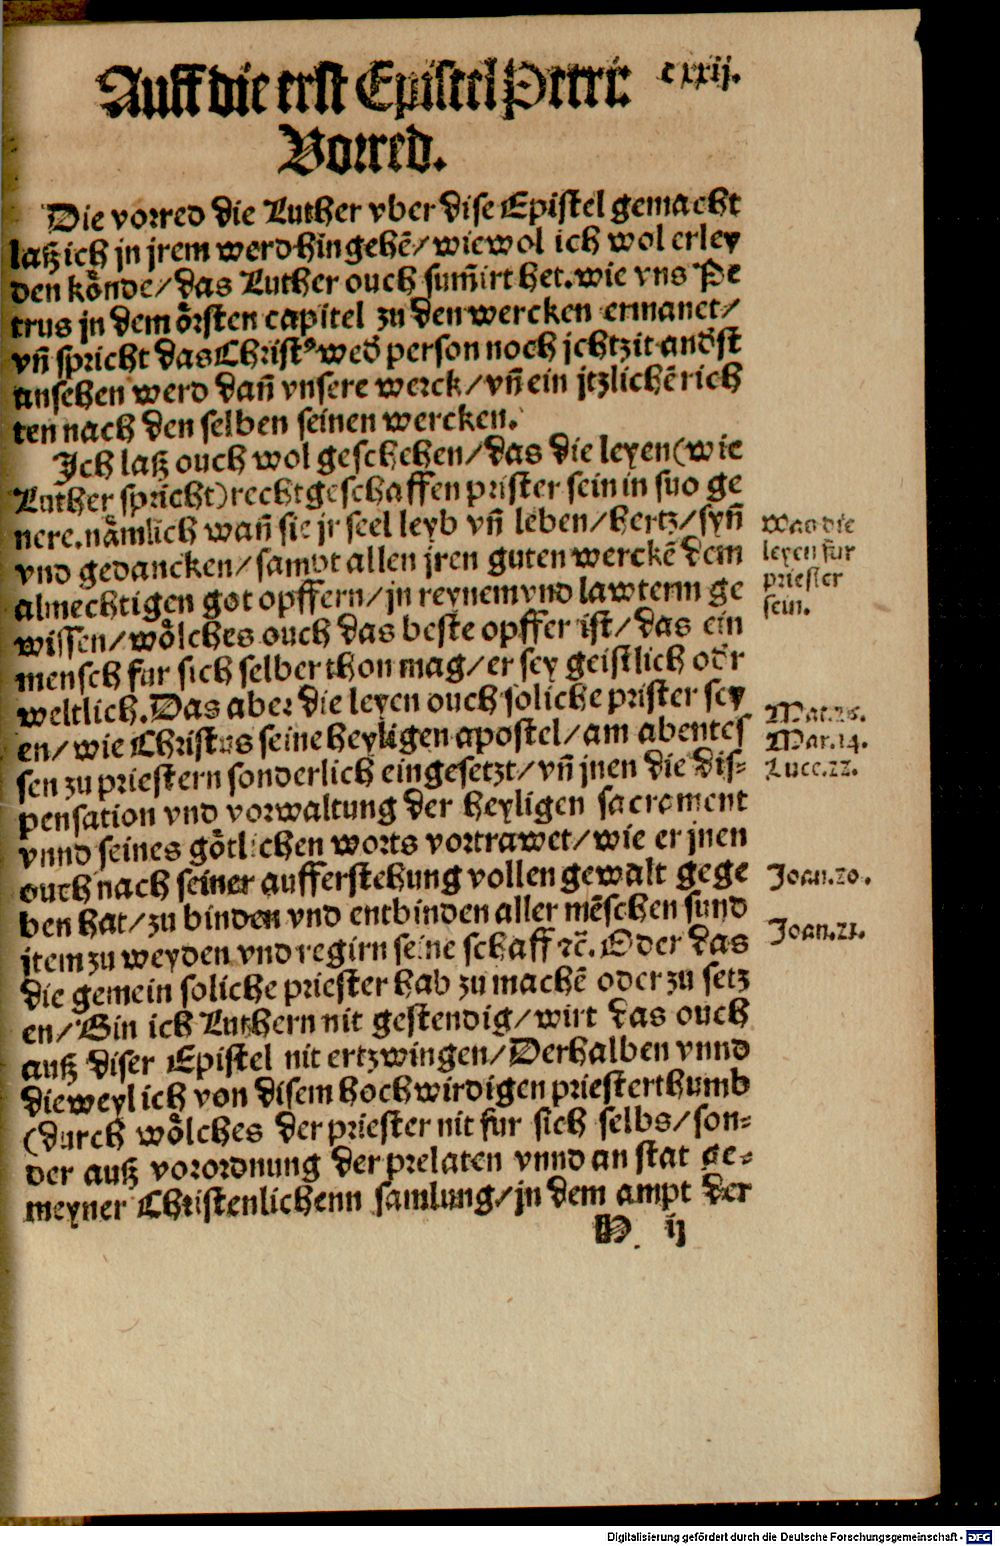 Auff die erst Epistel Petri: cxxij.
Vorred.
Die vorred die Luther vber dise Epistel gemacht
laß ich jn jrem werd hin gehẽ/ wiewol ich wol erley
den kǒnde/ das Luther ouch sum̃irt het. wie vns Pe
trus jn dem ǒrsten capitel zu den wercken ermanet/
vñ spricht das Christꝰ wed̕ person noch jchtzit and̕st
ansehen werd dañ vnsere werck/ vñ ein jtzlichẽ rich
ten nach den selben seinen wercken.
Jch laß ouch wol geschehen/ das die leyen (wie
Luther spricht) recht geschaffen prister sein in suo ge
nere. nämlich wañ sie jr seel leyb vñ leben/ hertz/ syñ
vnd gedancken/ sampt allen jren guten werckẽ dem
almechtigen got opffern/ jn reynem vnd lawterm ge
wissen/ wǒlches ouch das beste opffer ist/ das ein
mensch fur sich selber thon mag/ er sey geistlich od̕r
weltlich. Das aber die leyen ouch soliche prister sey
en/ wie Christus seine heyligen apostel/ am abentes
sen zu priestern sonderlich eingesetzt/ vñ jnen die dis⸗
pensation vnd vorwaltung der heyligen sacrament
vnnd seines gǒtlichen worts vortrawet/ wie er jnen
ouch nach seiner aufferstehung vollen gewalt gege
ben hat/ zu binden vnd entbinden aller mẽschen sund
jtem zu weyden vnd regirn seine schaff ⁊c̃. Oder das
die gemein soliche priester hab zu machẽ oder zu setz
en/ Bin ich Luthern nit gestendig/ wirt das ouch
auß diser Epistel nit ertzwingen/ Derhalben vnnd
dieweyl ich von disem hochwirdigen priesterthumb
(durch wǒlches der priester nit fur sich selbs/ son⸗
der auß vorordnung der prelaten vnnd an stat ge⸗
meyner Christenlichenn samlung/ jn dem ampt der
N ij
Was die
leyen fur
priester
sein.
Mat.26.
Mar.14.
Luce.22.
Joan.20.
Joan.21.
Digitalisierung gefördert durch die Deutsche Forschungsgemeinschaft - DFG